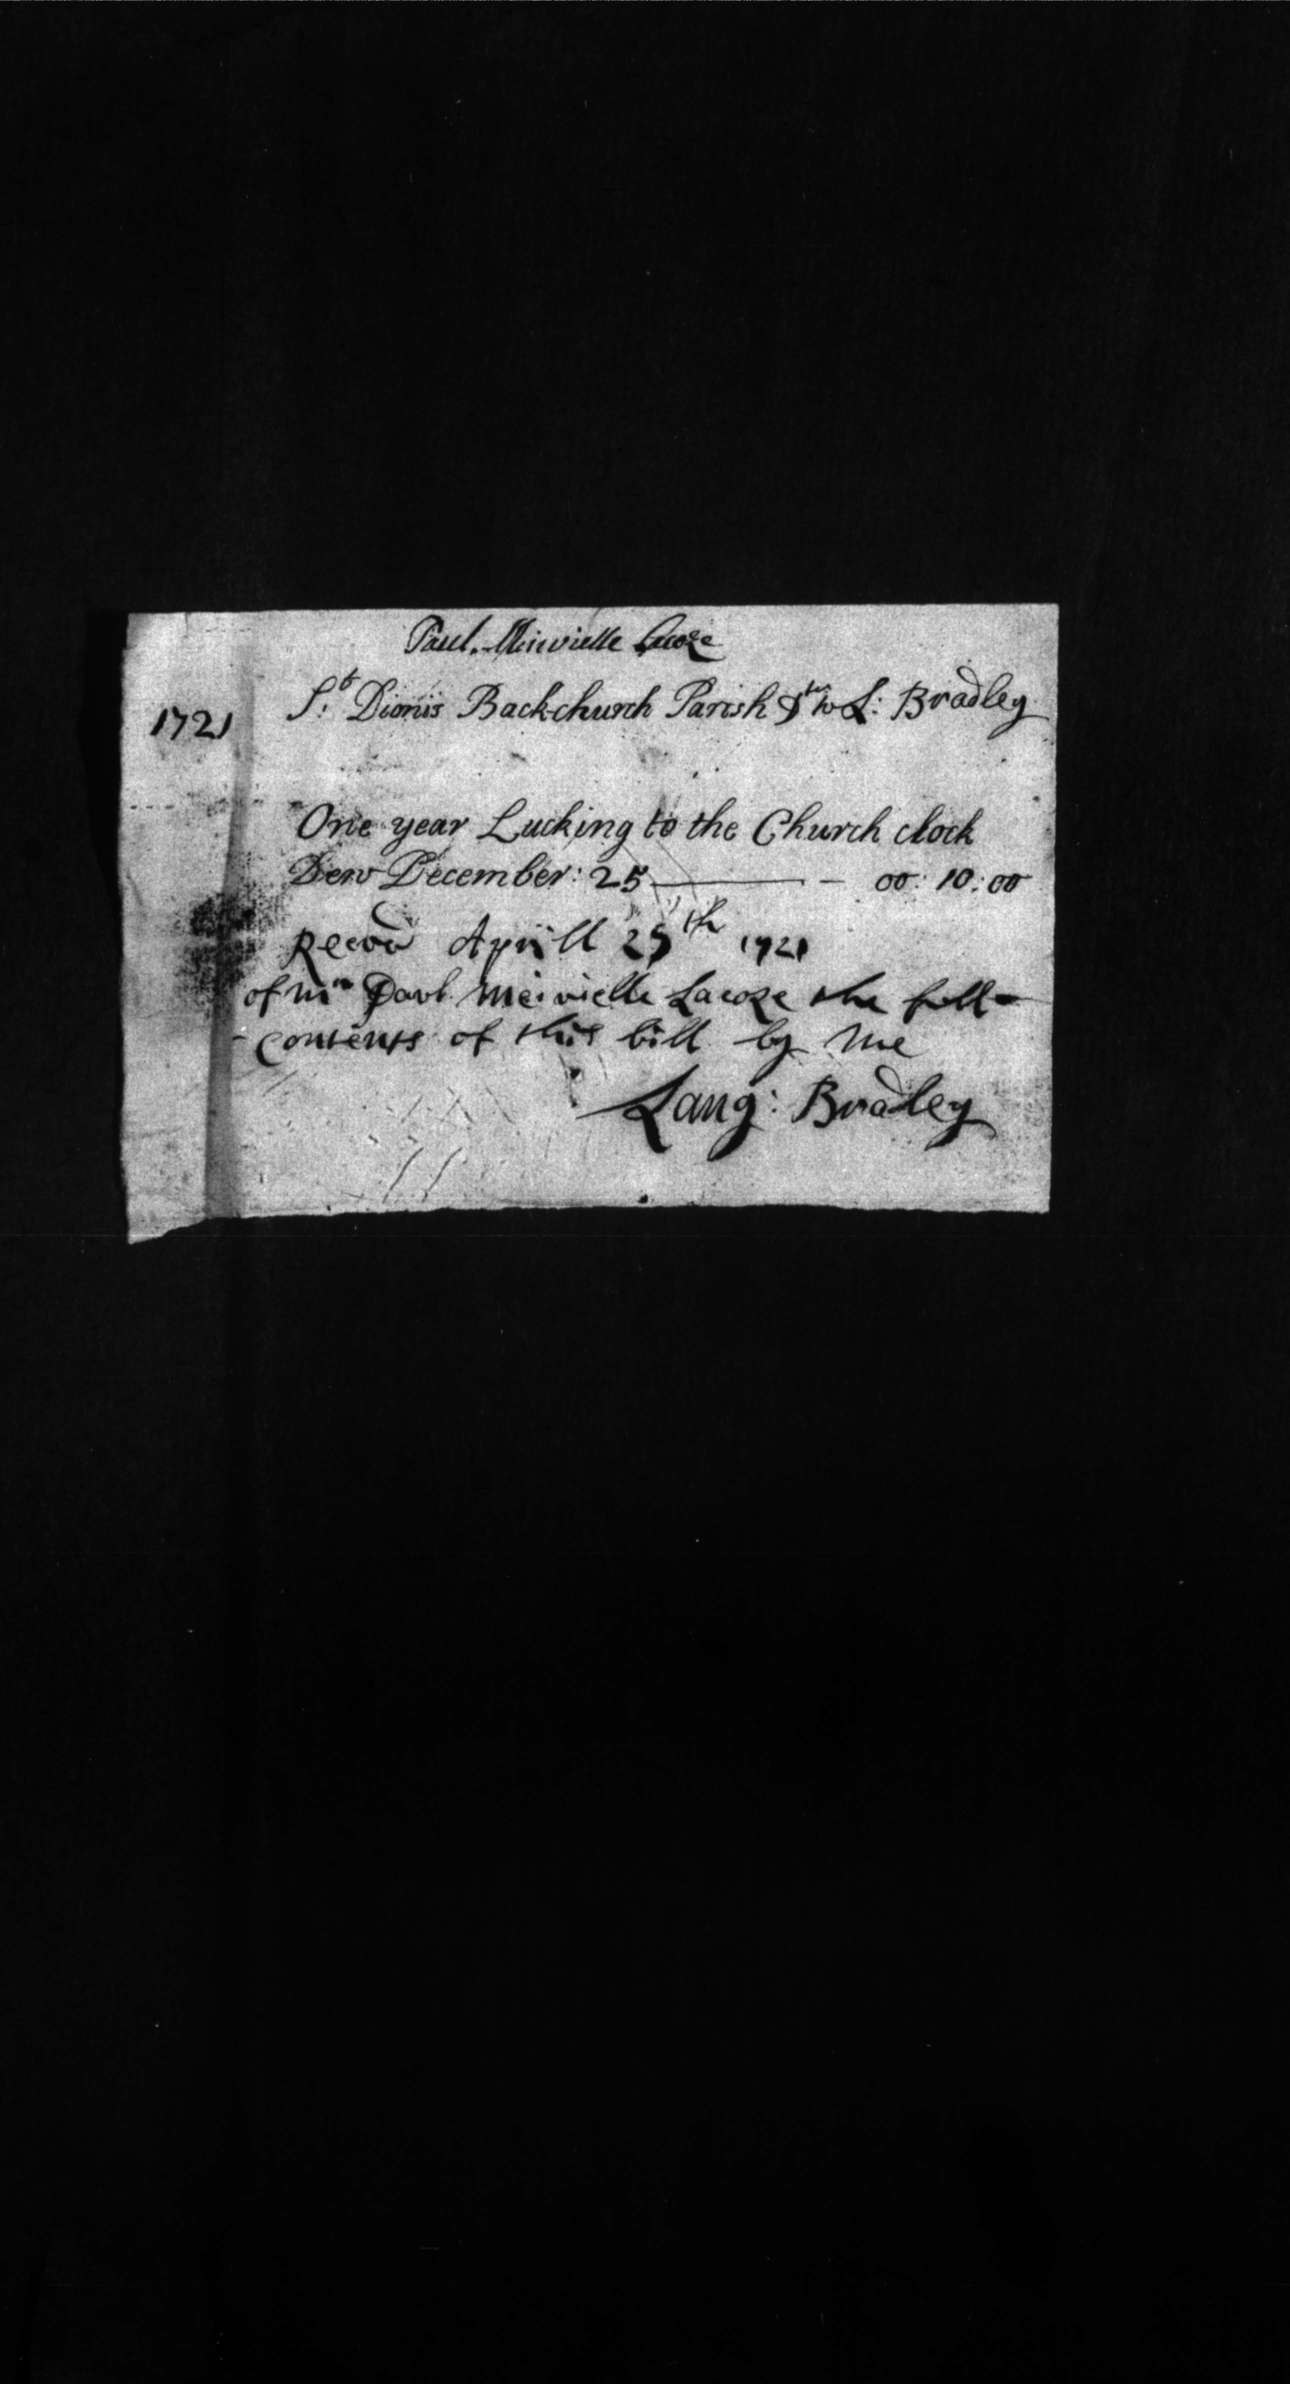 Paul. Meivielle Lacoze
1721 St. Dionis Backchurch Parish Dtor to L: Bradley
One year Lucking to the Church clock
Dew December: 25 — 00: 10: 00
Recvd Aprill 25th 1721
of Mr Paul Meivielle Lacoze the full
contents of this bill by Me
Lang: Bradley